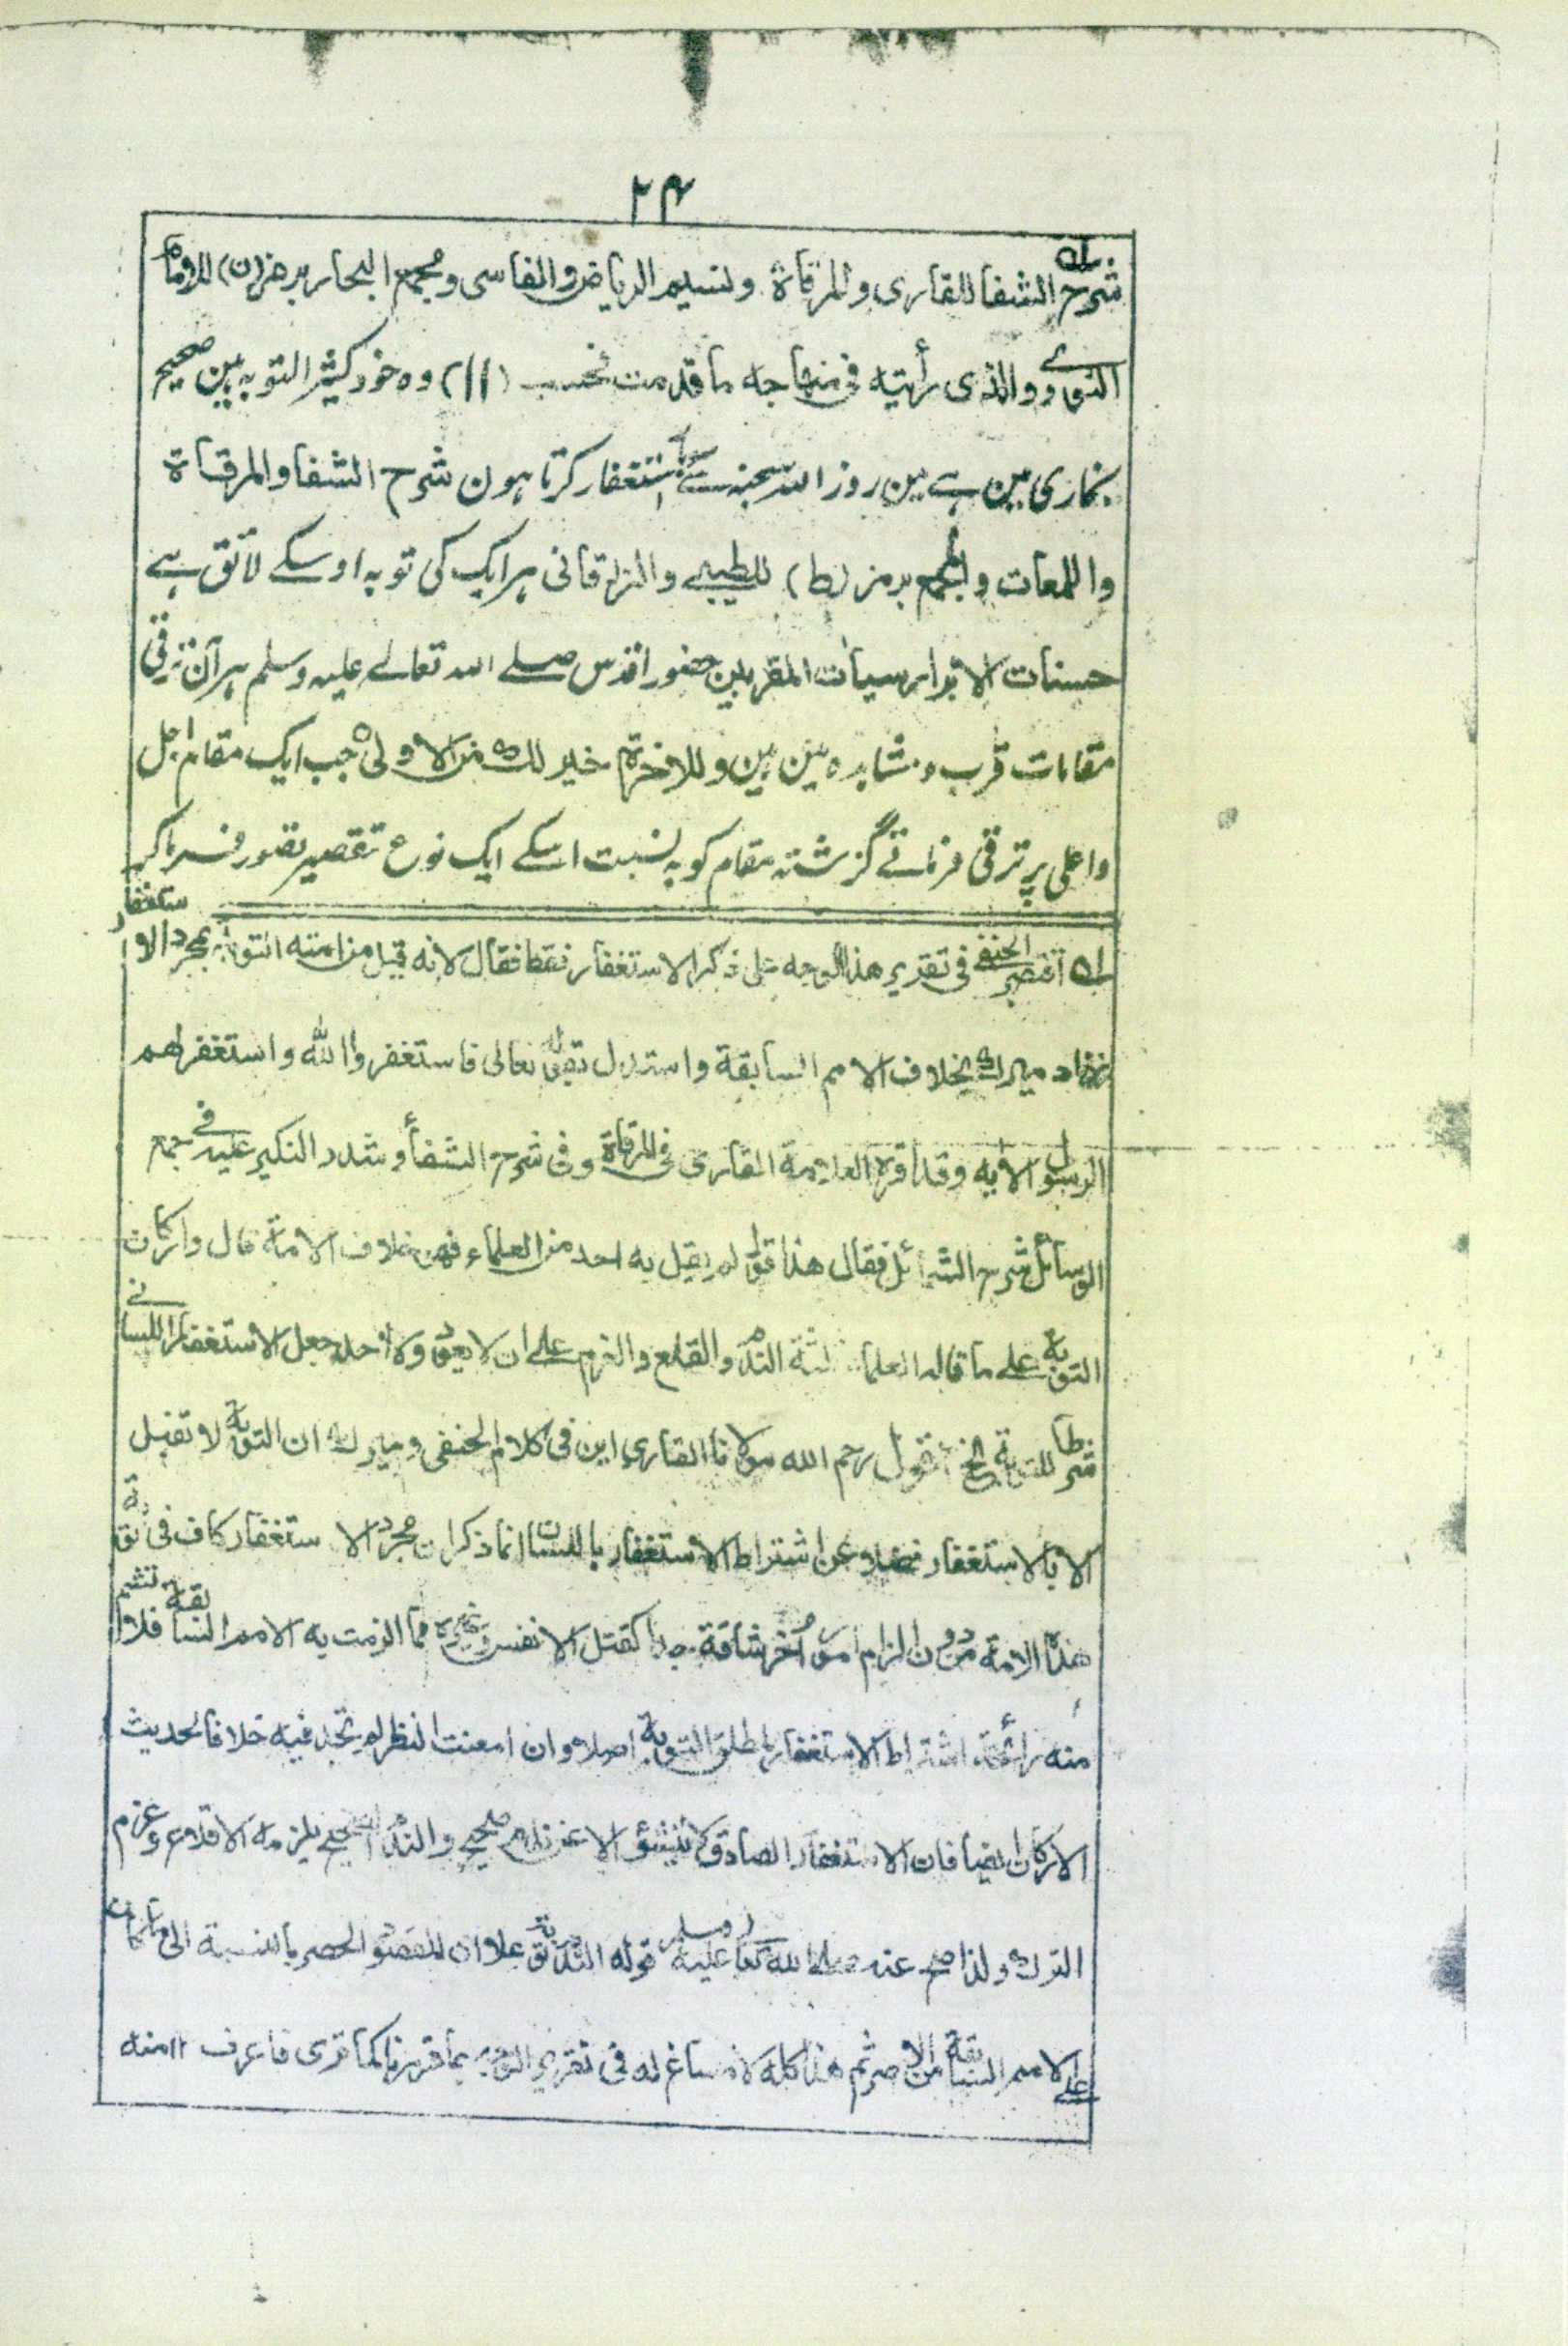 ۲۴
شرح الشفا للقاری والمرقاة ونسیم الریاض والفاسی ومجمع البحار برمز (ن) للامام
النووی والذی رأیته فی منهاجه ما قدمت فحسب (۱۱) وہ خود کثیر التوبہ ہین صحیح
بخاری مین ہے مین روز اللہ سبحنہ سے استغفار کرتا ہون شرح الشفا والمرقاة
واللمعات والمجمع برمز (ط) للطیبی والزرقانی ہر ایک کی توبہ اوسکے لائق ہے
حسنات الابرار سیات المقربین حضور اقدس صلے اللہ تعالے علیہ وسلم ہر آن ترقی
مقامات قرب و مشاہدہ مین ہین وللاخرة خیر لك من الاولی جب ایک مقام اجل
واعلی پر ترقی فرماتے گزشتہ مقام کو بہ نسبت اسکے ایک نوع تقصیر تصور فرماکر
لہ اقتصر الحنفی فی تقریر هذا الوجه علی ذکر الاستغفار فقط فقال لانه قبل من امته التوبة بمجرد الاستغفار
زاد میرك بخلاف الامم السابقة واستدل بقوله تعالی فاستغفروا الله واستغفر لهم
الرسول الایه وقد اقره العلامة القاری فی المرقاة وفی شرح الشفا وشدد النکیر علیه فی جمع
الوسائل شرح الشمائل فقال هذا قول لم یقل به احد من العلماء فهو خلاف الامة قال وارکان
التوبة علی ما قاله العلماء ثلثة الندم والقلع والعزم علی ان لا یعود ولا احد جعل الاستغفار اللسانی
شرطا للتوبة الخ اقول رحم الله مولانا القاری این فی کلام الحنفی ومیرك ان التوبة لا تقبل
الا بالاستغفار فضلا عن اشتراط الاستغفار باللسان انما ذکر ان مجرد الاستغفار کاف فی توبة
هذه الامة من دون الزام امور اخر شاقة جدا کقتل الانفس وغیره مما الزمت به الامم السابقة فلا تشم
منه رائحة اشتراط الاستغفار لمطلق التوبة اصلا وان امعنت النظر لم تجد فیه خلافا لحدیث
الارکان ایضا فان الاستغفار الصادق لا ینشؤ الا عن ندم صحیح والندم الصحیح یلزمه الاقلاع وعزم
الترك ولذا صح عنه صلی الله تعالی علیه وسلم قوله الندم توبة علا ان المقصود الحصر بالنسبة الی ما کان
علی الامم السابقة من الاصر ثم هذا کله لا مساغ له فی تقریر الوجه بما قررنا کما تری فاعرف ۱۱ منه